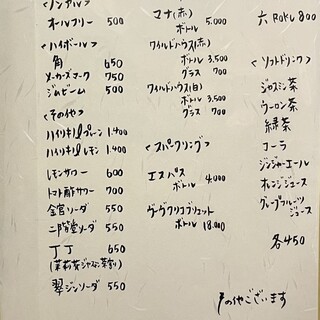 <ノンアル>
オールフリー 500
<ハイボール>
角 650
メーカーズマーク 750
ジムビーム 500
<その他>
ハイリキプレーン 1.400
ハイリキレモン 1.400
レモンサワー 600
トマト酢サワー 700
金宮ソーダ 550
二階堂ソーダ 550
丁丁 650
(茉莉花ジャスミン茶割)
翠ジンソーダ 550
マナ(赤)
ボトル 5.000
ワイルドハウス(赤)
ボトル 3,500
グラス 700
ワイルドハウス(白)
ボトル 3,500
グラス 700
<スパークリング>
エスパス
ボトル 4.000
ヴーヴクリコ
ボトル 18.000
六 ROKU 800
<ソフトドリンク>
ジャスミン茶
ウーロン茶
緑茶
コーラ
ジンジャーエール
オレンジジュース
グレープフルーツ
ジュース
各450
その他ございます